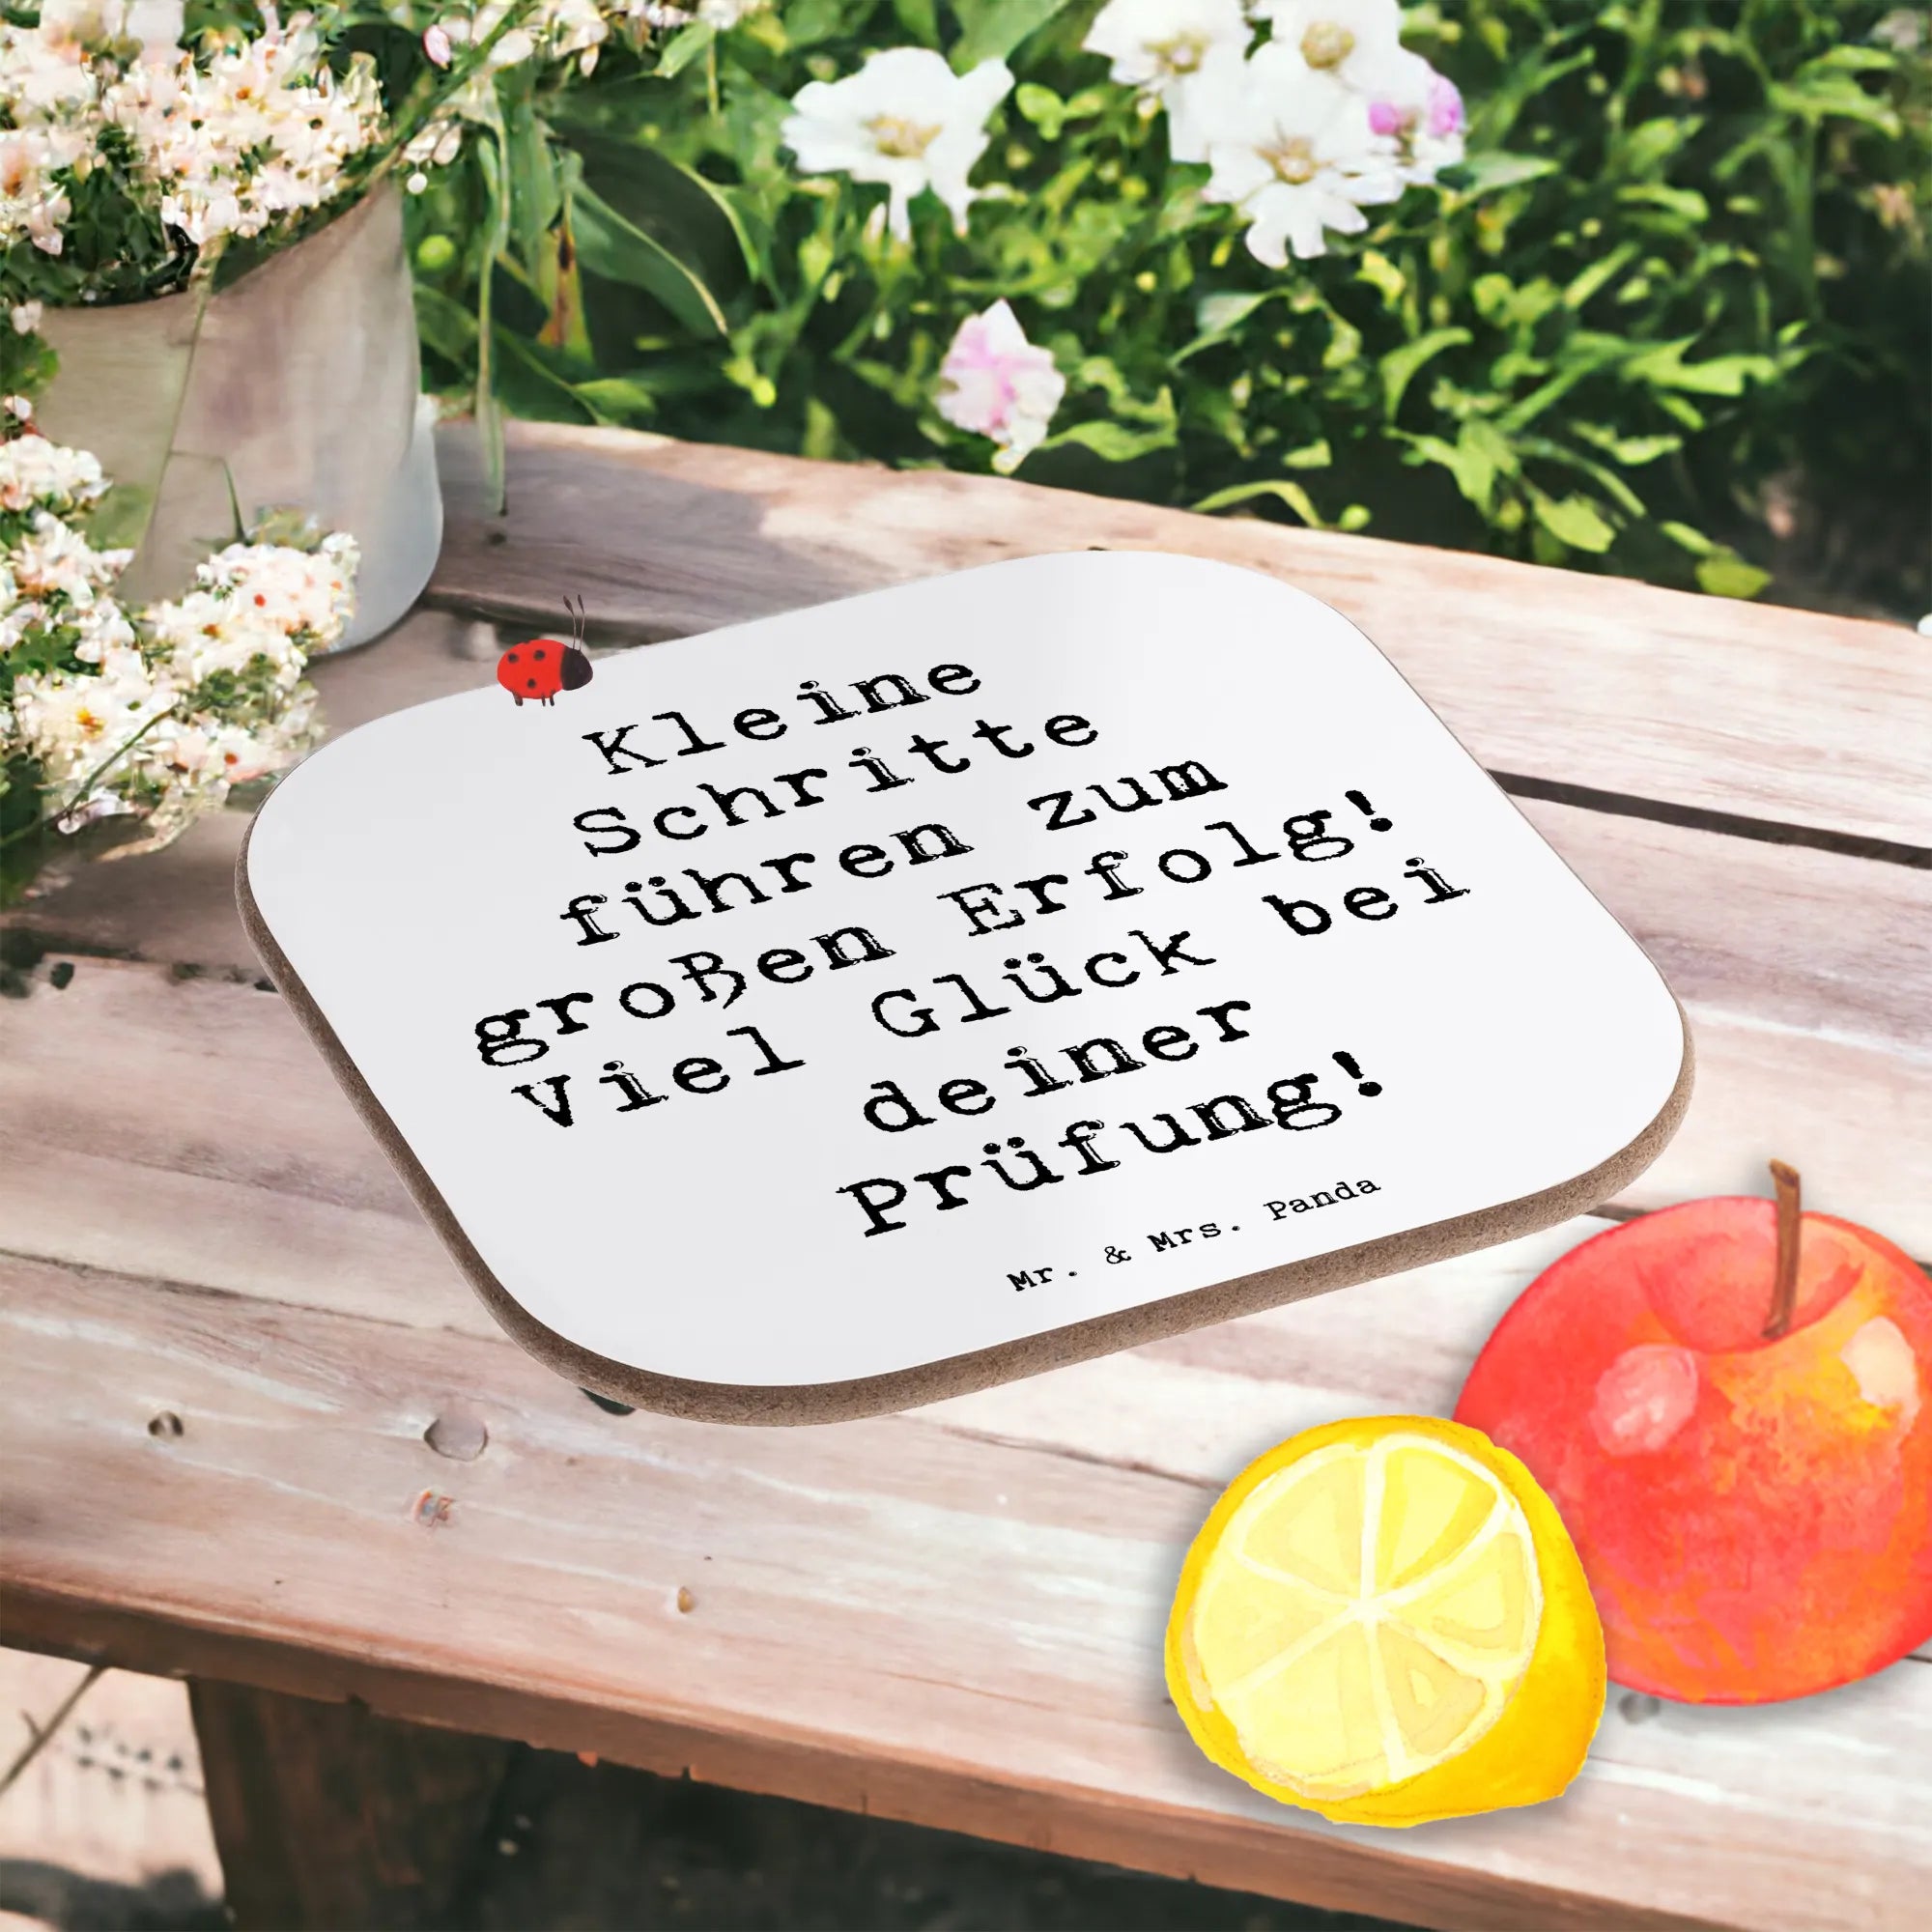 Kleine
Schritte
führen zum
großen Erfolg!
Viel Glück bei
deiner
Prüfung!
Mr. & Mrs. Panda